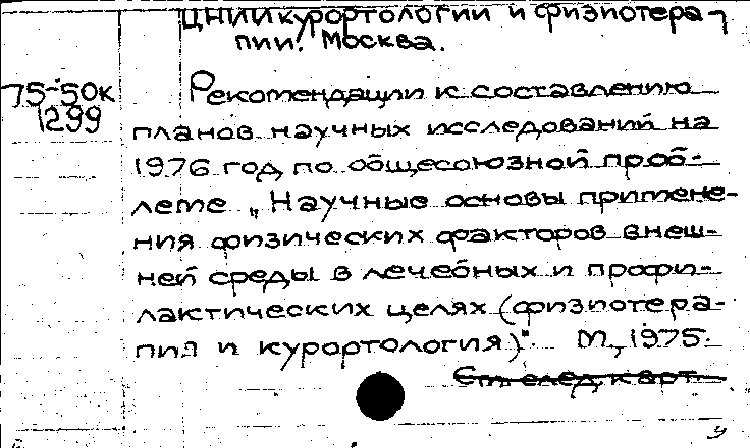 ЦНИИ курортологии и физиотера-
пии. Москва.
75-50к
1299
Рекомендации к составлению
планов научных исследований на
1976 год по общесоюзной проб-
леме „Научные основы примене-
ния физических факторов внеш-
ней среды в лечебных и профи-
лактических целях (физиотера-
пия и курортология)". М., 1975.
См. след. карт.